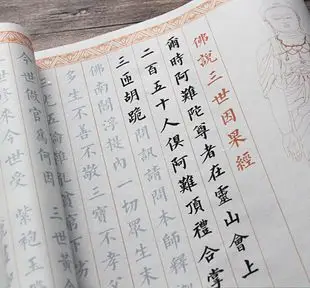 佛說三世因果經
爾時阿難陀尊者在靈山會上
二百五十人俱阿難頂禮合掌
三匝胡跪問訊請問本師釋
佛南閻浮提內一切眾生末
多生不善不敬三寶不孝父
今世做官為何因 三世黃
世修來今世受 紫袍玉